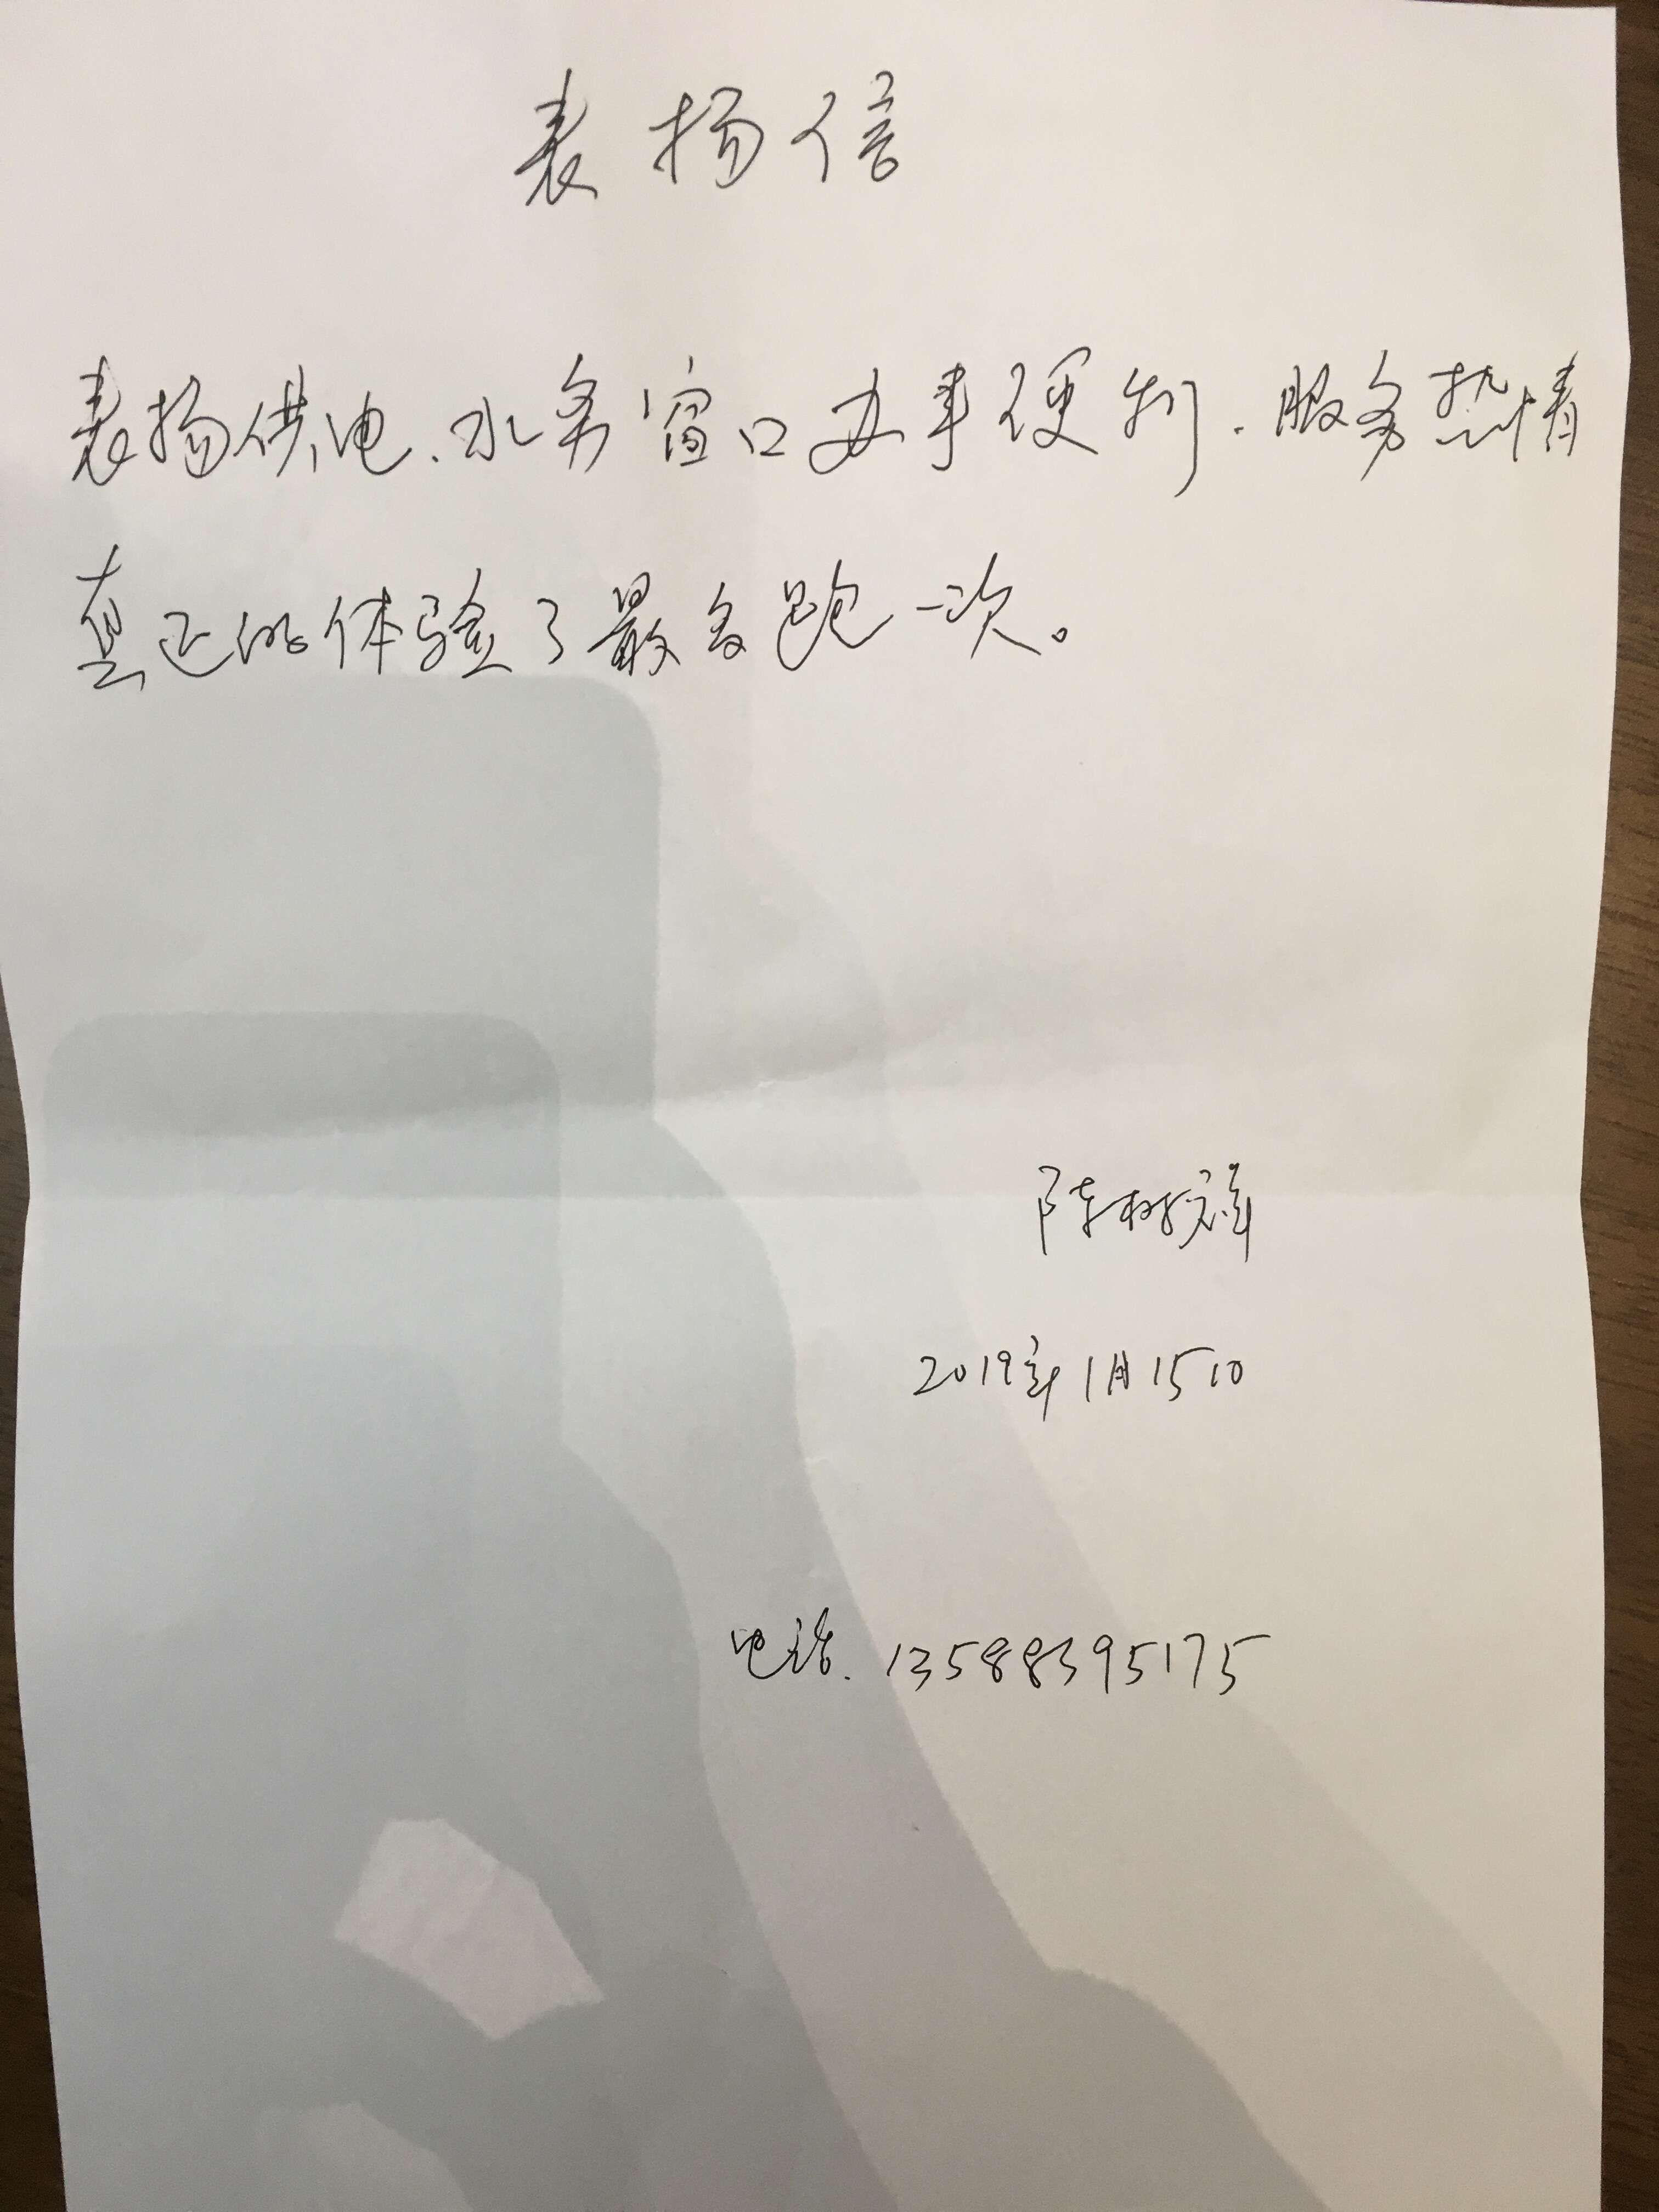 表扬信
表扬供电、水务窗口办事便利、服务热情
真正的体验了最多跑一次。
陈树
2019年1月15日
电话、13588395175